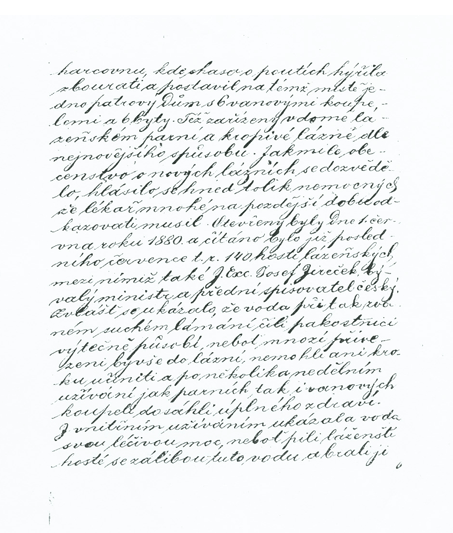 harcovnu, kde chasa o poutích hýřila
zbourati a postavil na témž místě je-
dno patrový dům s 6 vanovými koupe,-
lemi a 6 byty. Též zařízeny v domě lá-
zeňském parní a kropivé lázně dle
nejnovějšího způsobu. Jakmile obe-
censtvo o nových lázních se dozvědě-
lo, hlásilo se hned tolik nemocných
že lékař mnohé na pozdější dobu od-
kazovati musil. Otevřeny byly dne 1. čer-
vna roku 1880. a čítáno bylo již posled-
ního července t. r. 140. hostí lázeňských,
mezi nimiž také J. Exc. Josef Jireček bý-
valý ministr a přední spisovatel český.
Zvlášť se ukázalo, že voda při tak zva-
ném suchém lámání čili pakostnici
výtečně působí, neboť mnozí přive-
zeni byvše do lázní, nemohli ani kro-
ku učiniti a po několika nedělním
užívání jak parních tak i vanových
koupelí dosáhli uplného zdraví.
I vnitřním užíváním ukázala voda
svou léčivou moc, neboť pili lázeňští
hosté se zálibou tuto vodu a brali ji